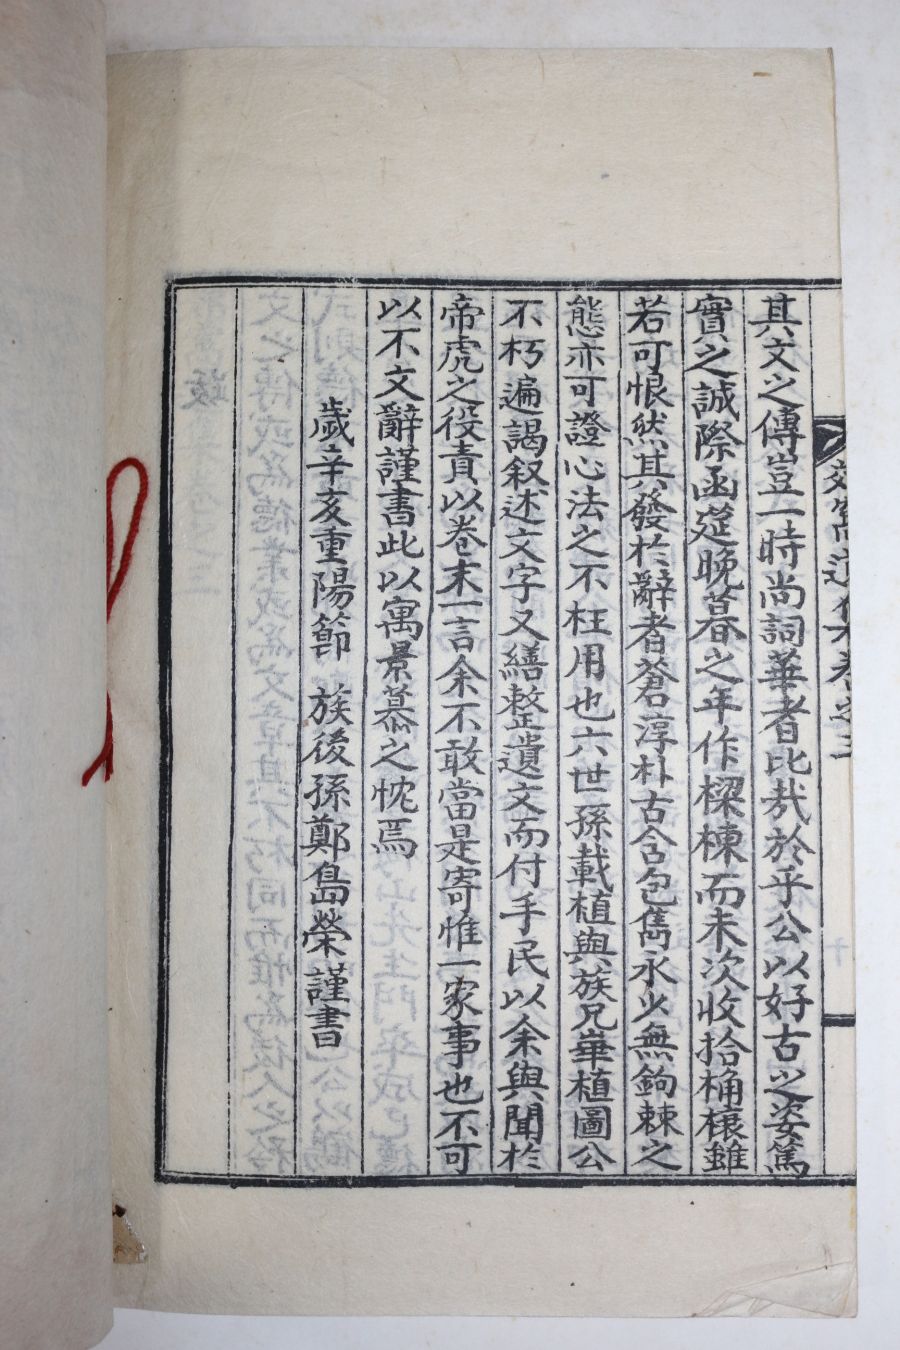 其文之傳豈一時尚詞華者比哉於乎公以好古之姿篤
實之誠際函筵晩暮之年作樑棟而未次收拾桷榱雖
若可恨然其發於辭者蒼淳朴古含包雋永少無鉤棘之
態亦可證心法之不枉用也六世孫載植與族兄崋植圖公
不朽遍謁叙述文字又繕整遺文而付手民以余與聞於
帝虎之役責以卷末一言余不敢當是寄惟一家事也不可
以不文辭謹書此以寓景慕之忱焉
歲辛亥重陽節 族後孫鄭島榮謹書